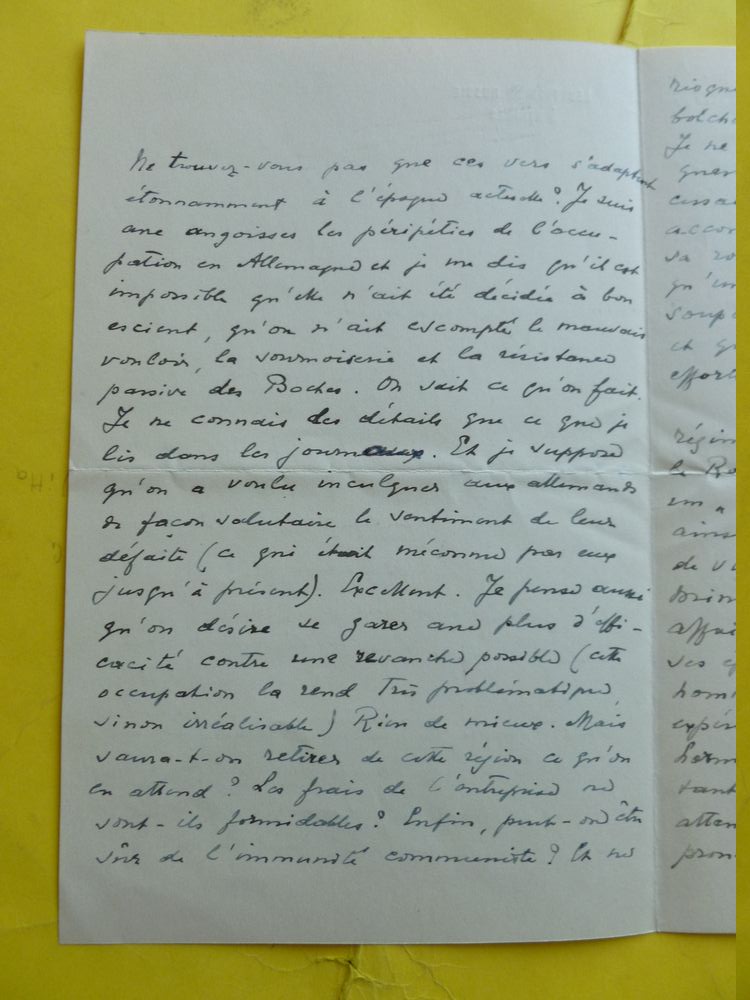 Ne trouvez-vous pas que ces vers s'adaptent
étonnamment à l'époque actuelle ? Je suis
avec angoisses les péripéties de l'occu-
pation en Allemagne et je me dis qu'il est
impossible qu'elle n'ait été décidée à bon
escient, qu'on n'ait escompté le mauvais
vouloir, la sournoiserie et la résistance
passive des Boches. On sait ce qu'on fait.
Je ne connais des détails que ce que je
lis dans les journaux. Et je suppose
qu'on a voulu inculquer aux allemands
de façon salutaire le sentiment de leur
défaite (ce qui était méconnu par eux
jusqu'à présent). Excellent. Je pense aussi
qu'on désire se garer avec plus d'effi-
cacité contre une revanche possible (cette
occupation la rend très problématique,
sinon irréalisable) Rien de mieux. Mais
saura-t-on retirer de cette région ce qu'on
en attend ? Les frais de l'entreprise ne
sont-ils formidables ? Enfin, peut-on être
sûr de l'immunité communiste ? Et ne
bolch
Je ne
accor
sa
qu'
soup
et
effort
région
le
ains
de
affai
ses
hom
expér
tant
atten
pron